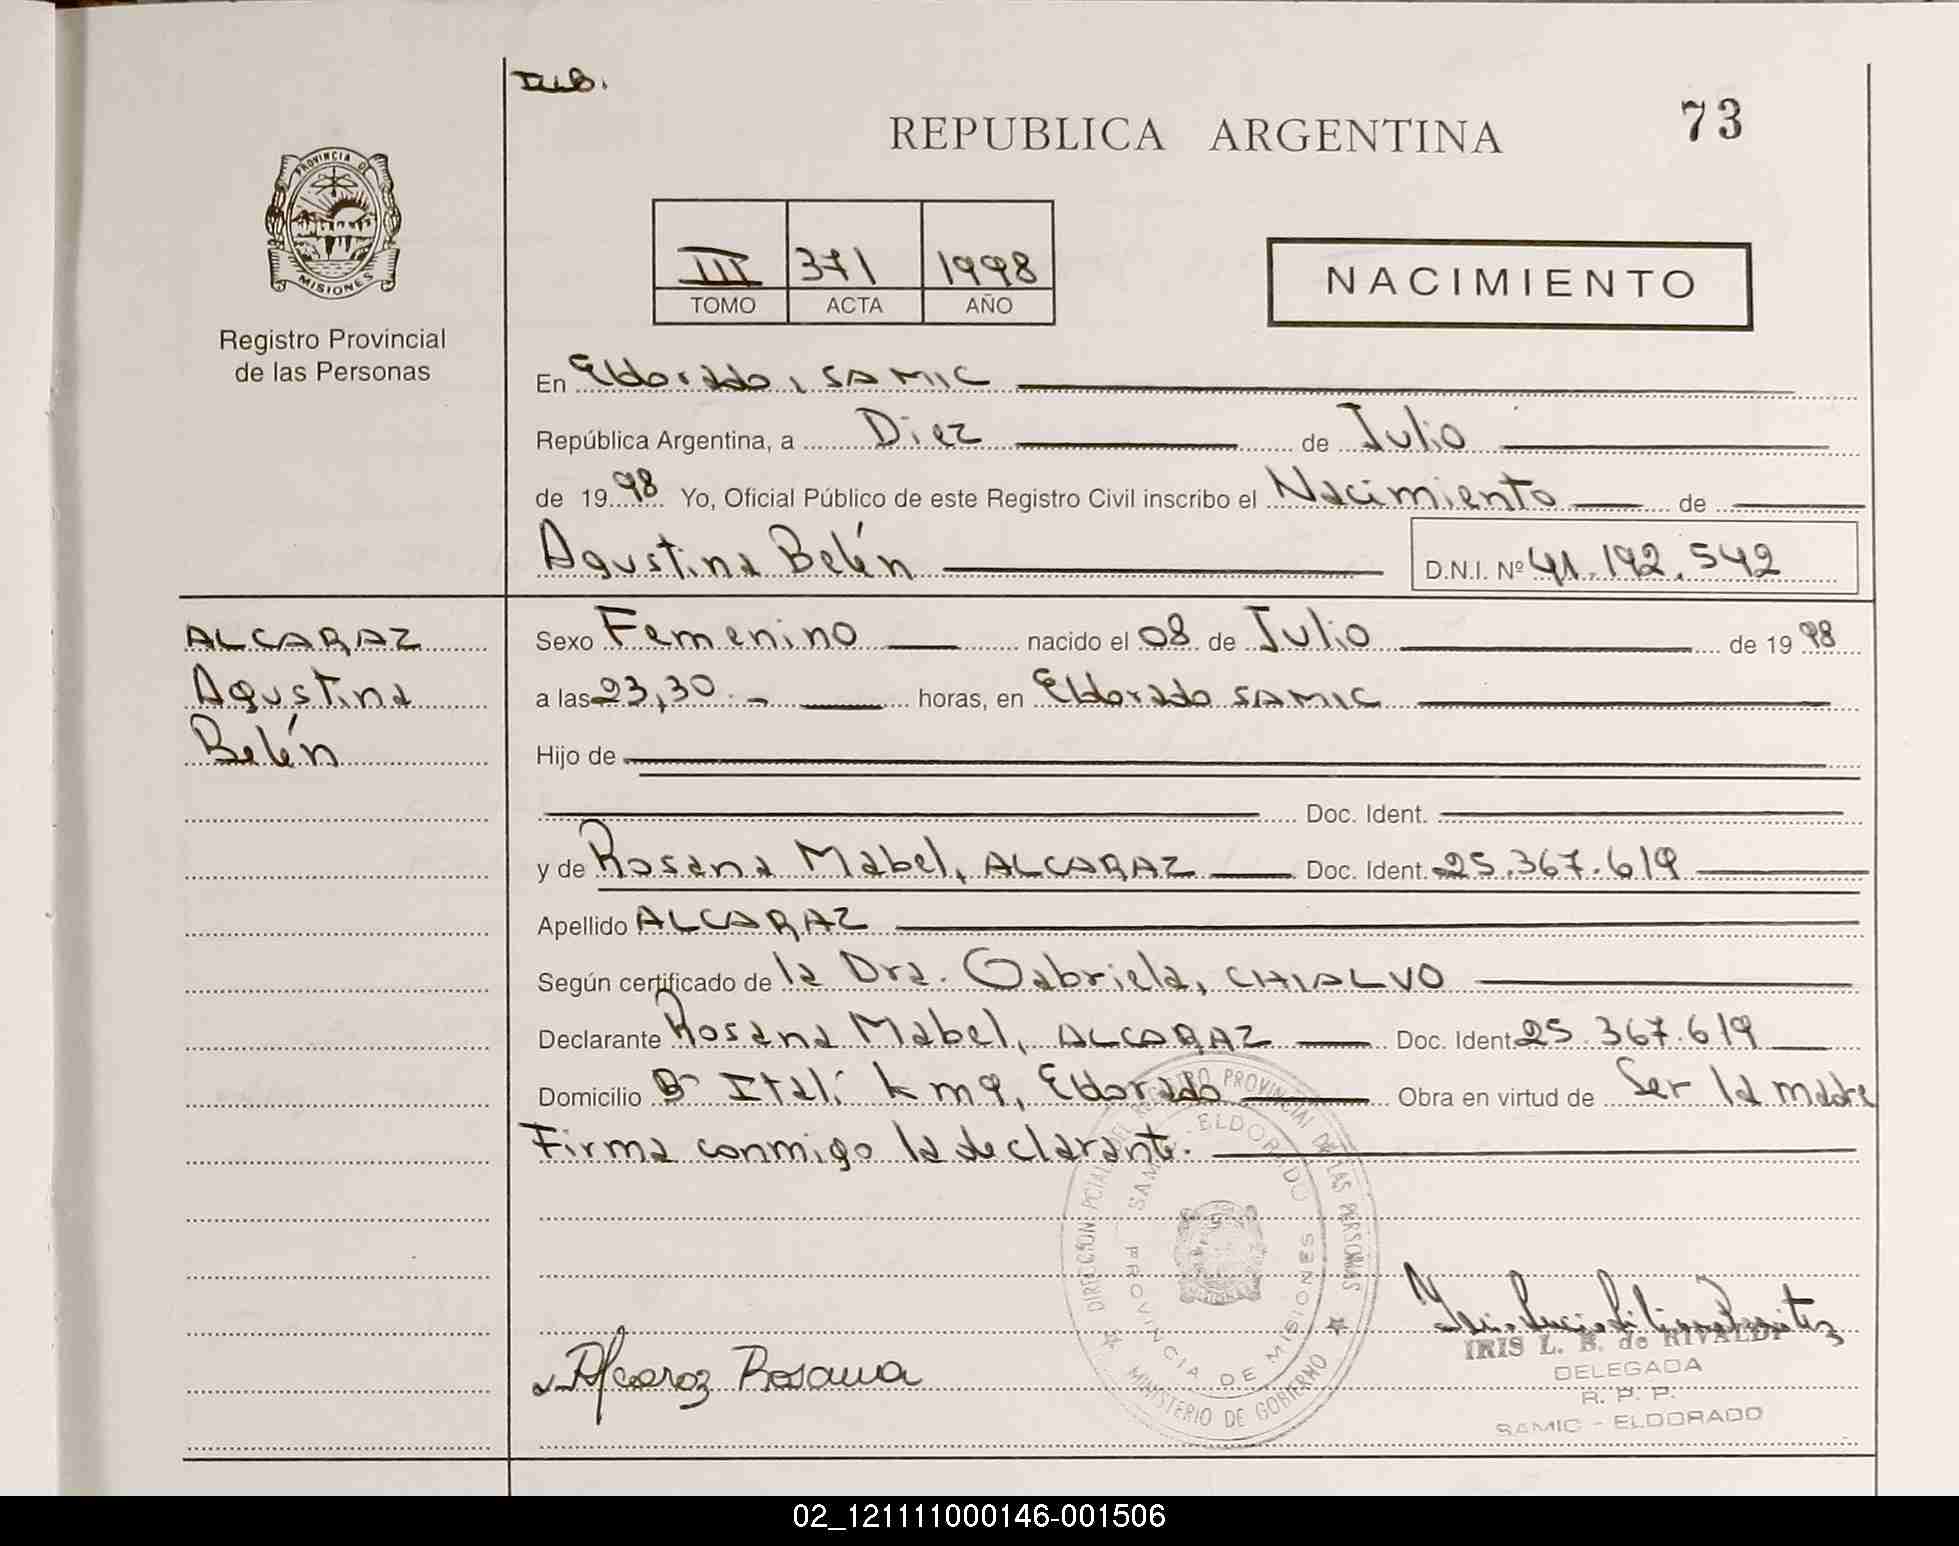 Dub.
REPUBLICA ARGENTINA
73
PROVINCIA DE
MISIONES
Registro Provincial
de las Personas
III 371 1998
TOMO ACTA AÑO
NACIMIENTO
En Eldorado, SAMIC
República Argentina, a Diez de Julio
de 1998 Yo, Oficial Público de este Registro Civil inscribo el Nacimiento de
Agustina Belén D.N.I. Nº 41.192.542
ALCARAZ
Agustina
Belén
Sexo Femenino nacido el 08 de Julio de 1998
a las 23,30.- horas, en Eldorado SAMIC
Hijo de
Doc. Ident.
y de Rosana Mabel, ALCARAZ Doc. Ident. 25.367.619
Apellido ALCARAZ
Según certificado de la Dra. Gabriela, CHIALVO
Declarante Rosana Mabel, ALCARAZ Doc. Ident 25.367.619
Domicilio Bº Itali km 9, Eldorado Obra en virtud de Ser la madre
Firma conmigo la declarante.
DIRECCION PCIAL DEL REGISTRO PROVINCIAL DE LAS PERSONAS
SAMIC - ELDORADO
PROVINCIA DE MISIONES
MINISTERIO DE GOBIERNO
Alcaraz Rosana
IRIS L. B. de RIVALDI
DELEGADA
R. P. P.
SAMIC - ELDORADO
02_121111000146-001506